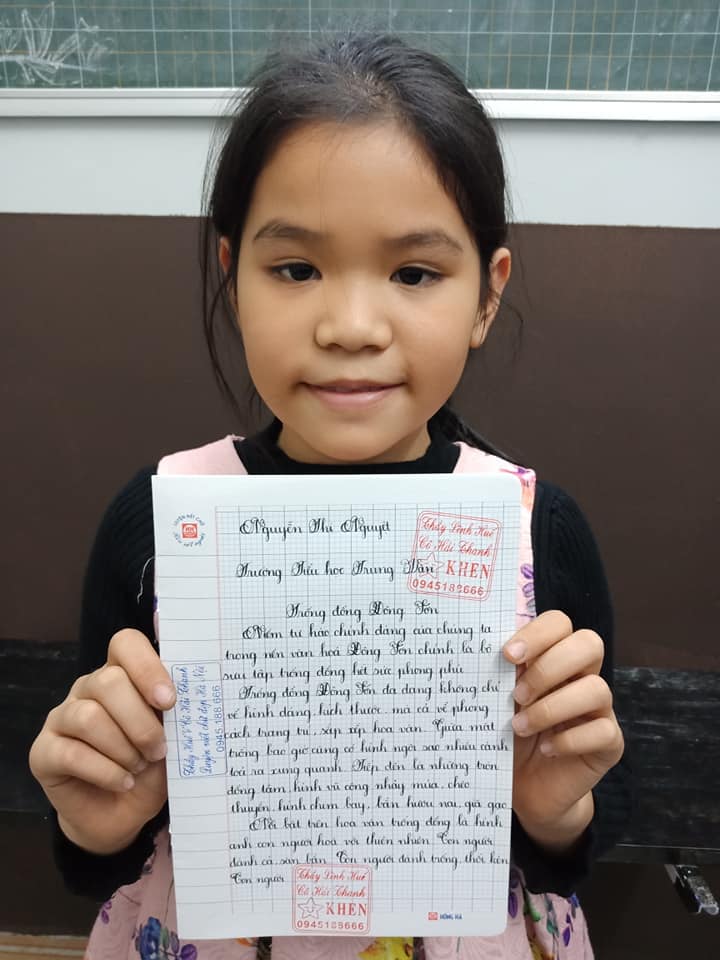 Nguyễn Thị Nguyệt
Trường Tiểu học Trung Văn
Thầy Linh Huế
Cô Hải Thanh
KHEN
0945188666
Trống đồng Đông Sơn
Niềm tự hào chính đáng của chúng ta
trong nền văn hoá Đông Sơn chính là bộ
sưu tập trống đồng hết sức phong phú
Trống đồng Đông Sơn đa dạng không chỉ
về hình dáng, kích thước, mà cả về phong
cách trang trí, sắp xếp hoa văn. Giữa mặt
trống bao giờ cũng có hình ngôi sao nhiều cánh
toả ra xung quanh. Tiếp đến là những
đồng tâm, hình vũ công nhảy múa, chèo
thuyền, hình chim bay, bản hươu nai, giã gạo
Nổi bật trên hoa văn trống đồng là hình
ảnh con người hoà với thiên nhiên. Con người
đánh cá, săn bắn. Con người đánh trống, thổi kèn
Con người
Thầy Huế & Cô Hải Thanh
Luyện viết chữ đẹp Hà Nội
0945 188 666
Thầy Linh Huế
Cô Hải Thanh
KHEN
0945188666
HỒNG HÀ